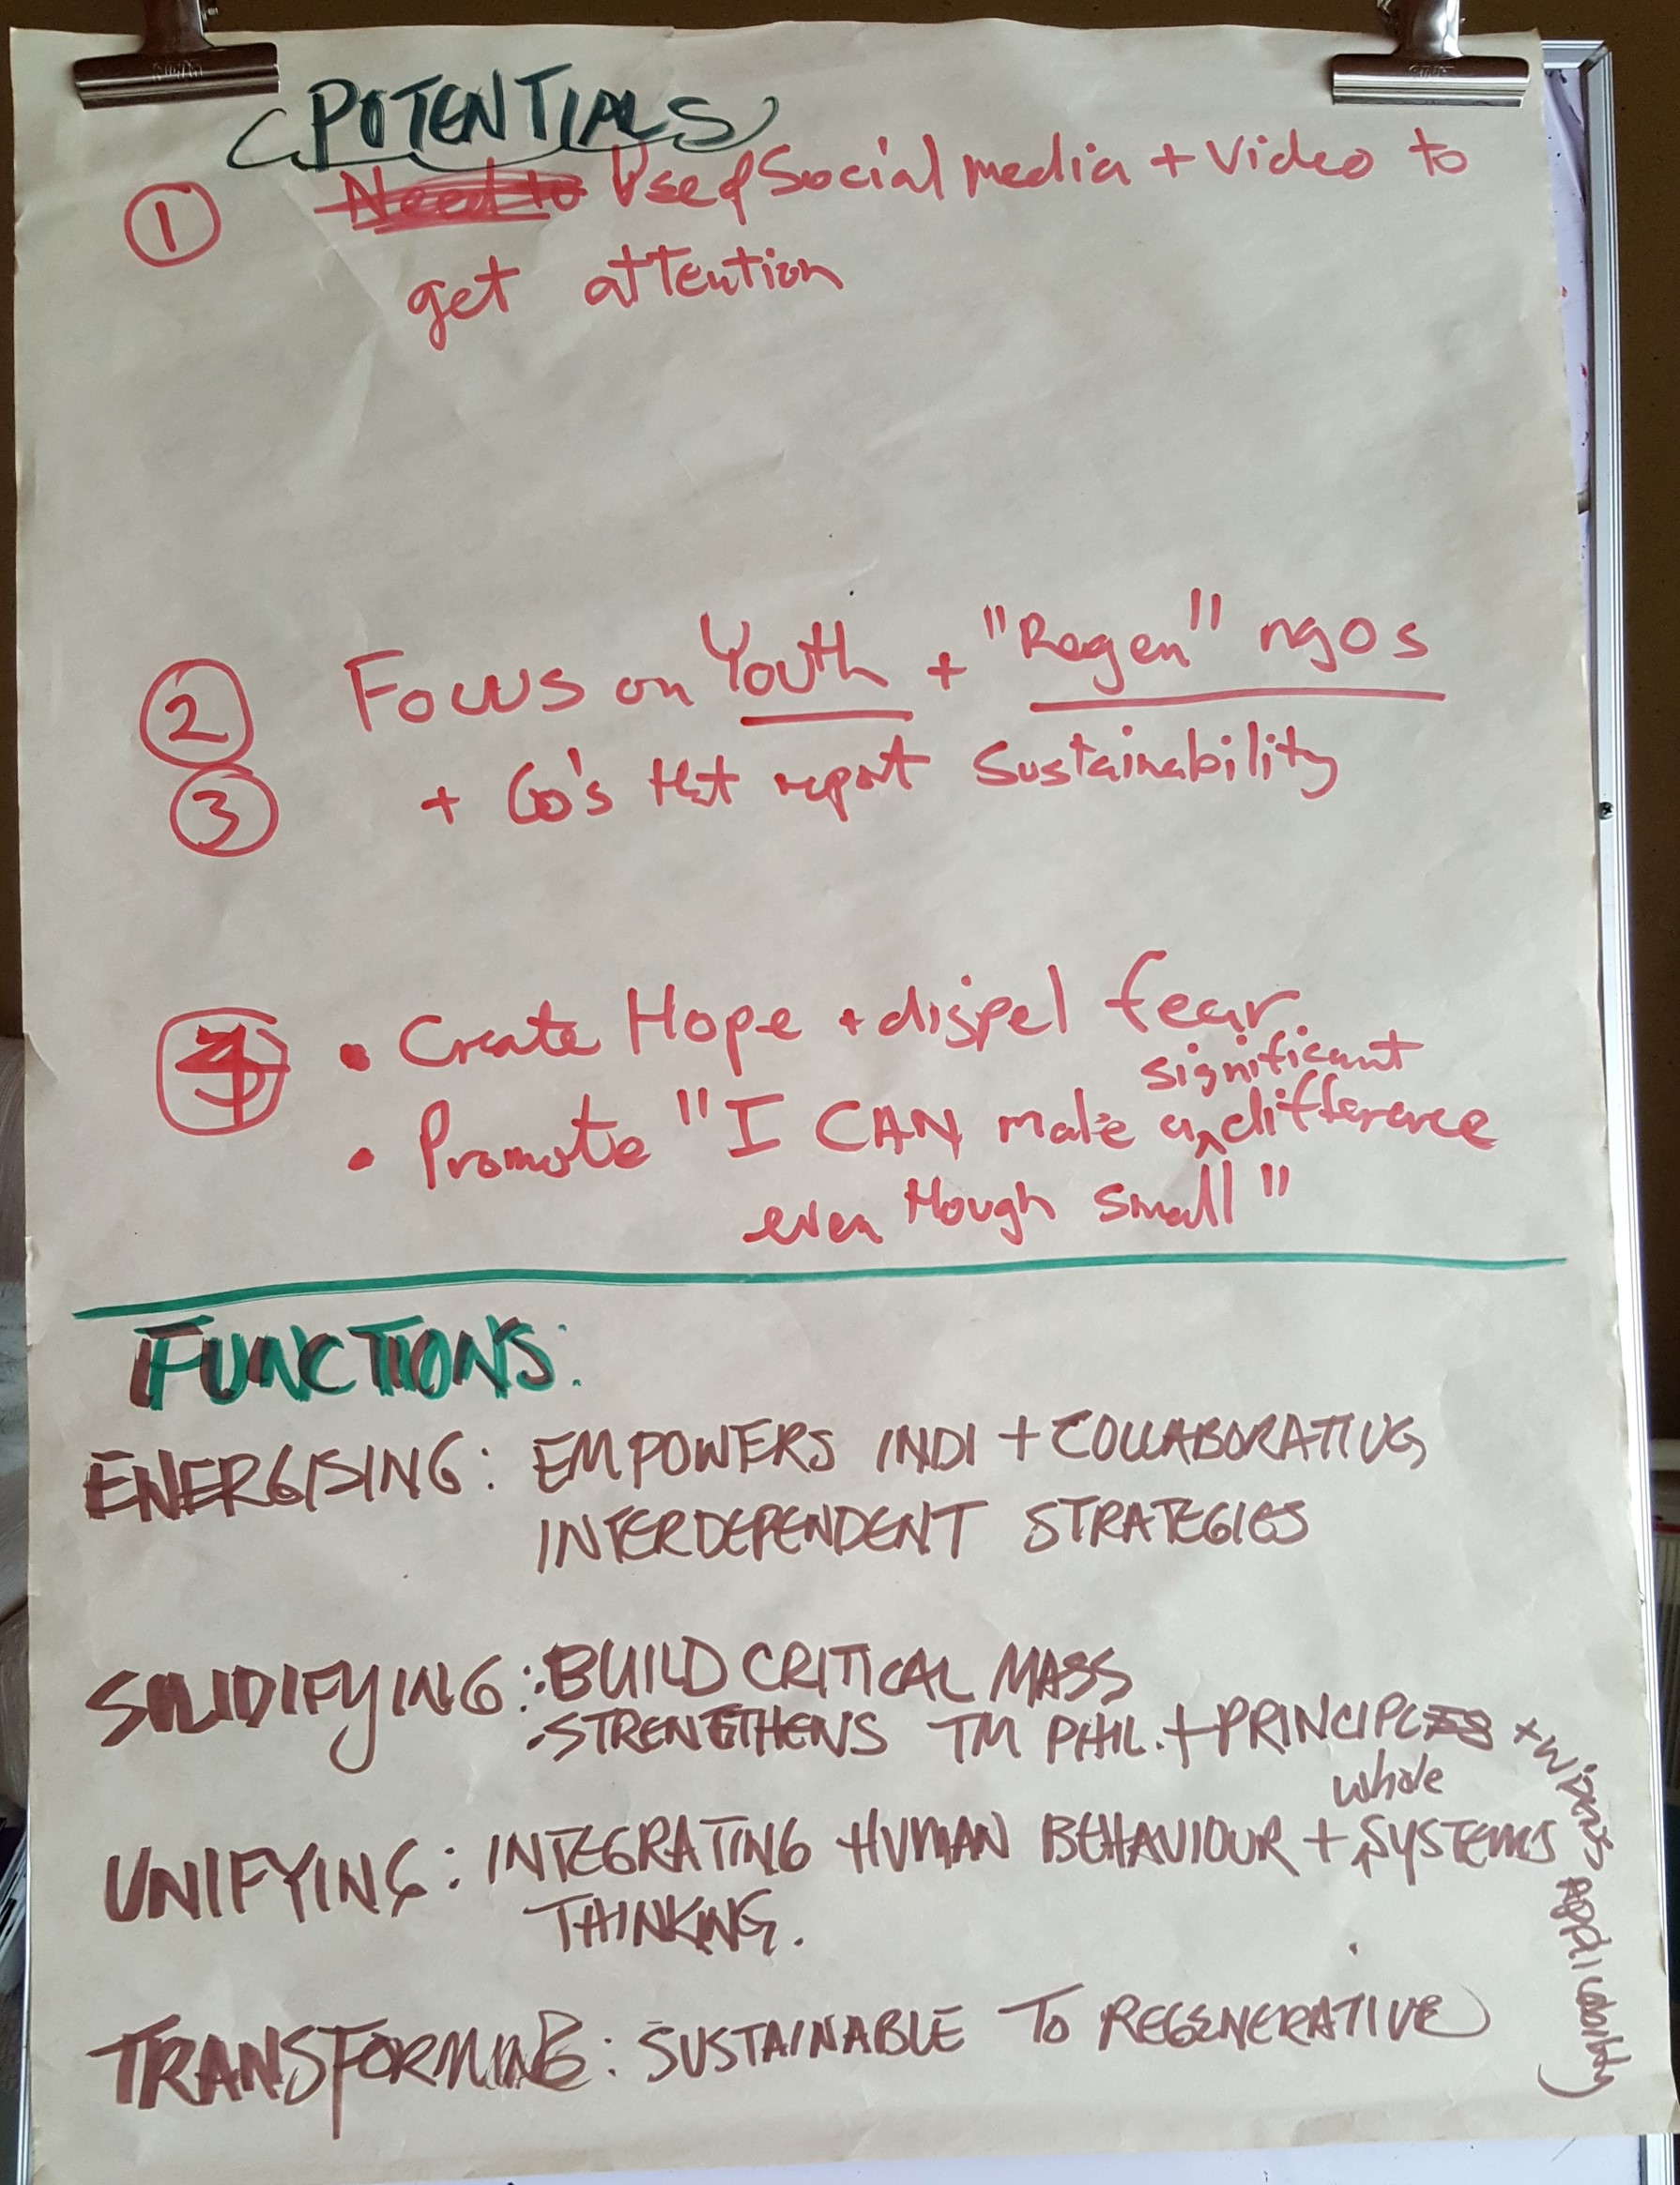 POTENTIALS
① Need to Use of Social media + Video to
get attention
② Focus on Youth + "Regen" ngos
③ + Co's that report Sustainability
④ • Create Hope + dispel fear
significant
• Promote "I CAN make a difference
even though small"
FUNCTIONS:
ENERGISING: EMPOWERS INDI + COLLABORATIVE,
INTERDEPENDENT STRATEGIES
SOLIDIFYING: • BUILD CRITICAL MASS
• STRENGTHENS TM PHIL. + PRINCIPLES + wider applicability
whole
UNIFYING: INTEGRATING HUMAN BEHAVIOUR + SYSTEMS
THINKING.
TRANSFORMING: SUSTAINABLE TO REGENERATIVE